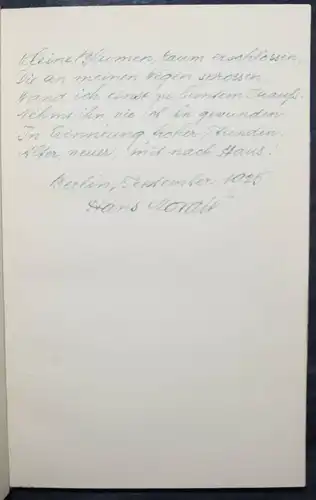 Kleine Blumen, kaum erschlossen,
Die an meinen Wegen schossen
Band ich einst zu buntem Strauß.
Nehmt ihn, wie ich ihn gewunden
In Erinnerung froher Stunden
Alter, neuer, mit nach Haus!
Berlin, September 1925
Hans